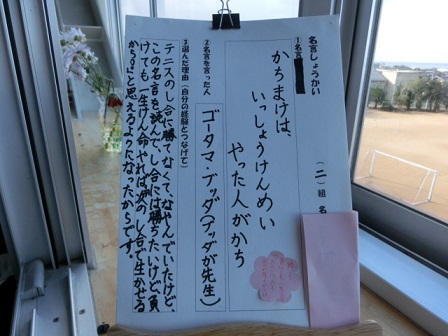 名言しょうかい
(二)組 名
①名言
かちまけは、
いっしょうけんめい
やった人がかち
②名言を言った人
ゴータマ・ブッダ(ブッダが先生)
③選んだ理由(自分の経験とつなげて)
テニスのし合に勝てなくてなやんでいたけど、
この名言を読んで、し合には勝ちたいけど、負
けても一生けん命やれば次のし合で生かせる
からいいと思えるようになったからです。